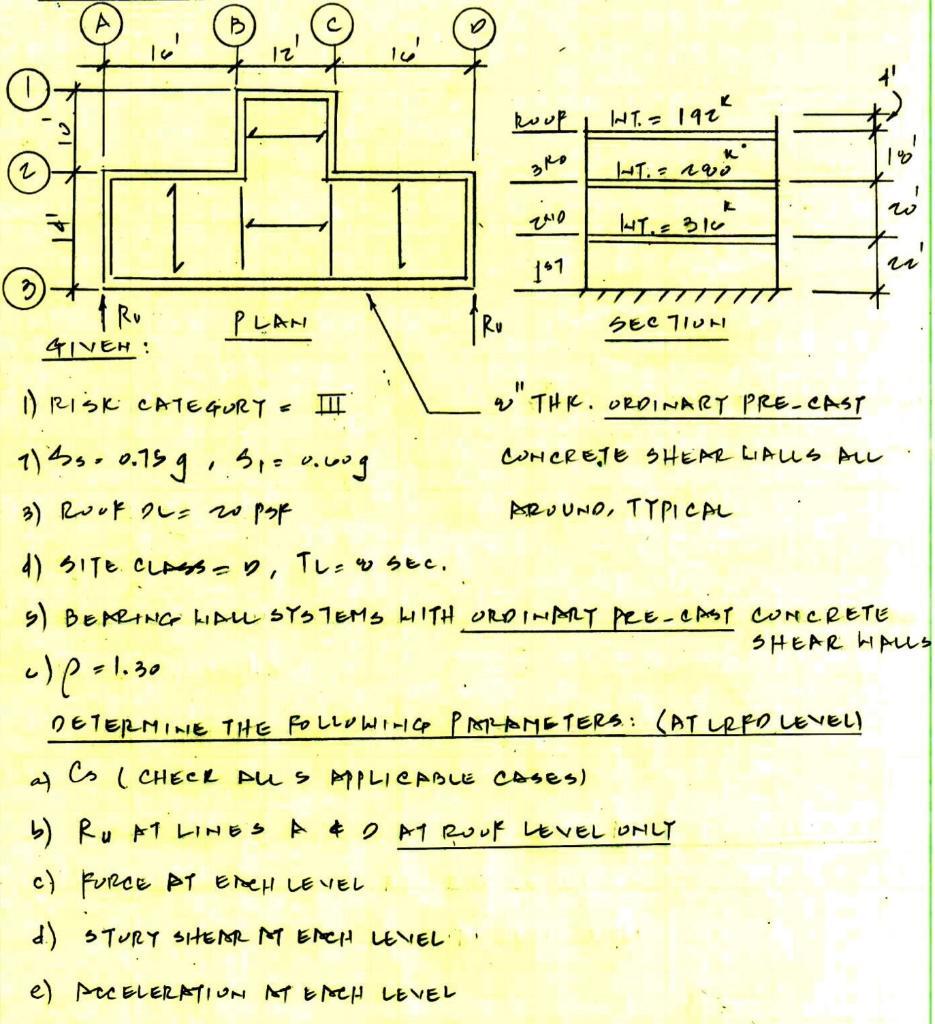 A B C D
16' 12' 16'
1
10'
2
14'
3
Ru
PLAN
Ru
ROOF WT. = 192K
3RD WT. = 280K
2ND WT. = 316K
1ST
4'
18'
20'
22'
SECTION
GIVEN:
1) RISK CATEGORY = III
2) Ss = 0.75g, S1 = 0.60g
3) ROOF DL = 20 PSF
4) SITE CLASS = D, TL = 8 SEC.
5) BEARING WALL SYSTEMS WITH ORDINARY PRE-CAST CONCRETE
SHEAR WALLS
6) ρ = 1.30
8" THK. ORDINARY PRE-CAST
CONCRETE SHEAR WALLS ALL
AROUND, TYPICAL
DETERMINE THE FOLLOWING PARAMETERS: (AT LRFD LEVEL)
a) Cs (CHECK ALL 5 APPLICABLE CASES)
b) Ru AT LINES A & D AT ROOF LEVEL ONLY
c) FORCE AT EACH LEVEL
d.) STORY SHEAR AT EACH LEVEL
e) ACCELERATION AT EACH LEVEL